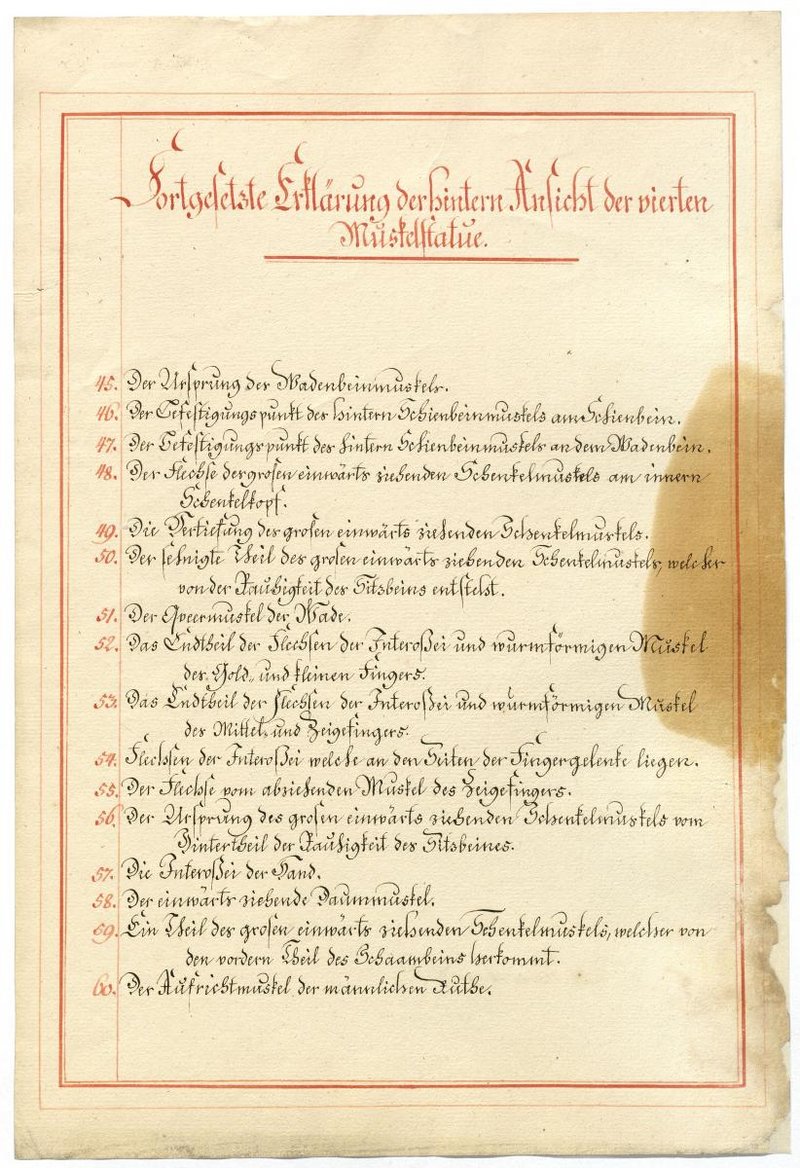 Fortgesetzte Erklärung der hintern Ansicht der vierten
Muskelstatue.
45. Der Ursprung der Wadenbeinmuskels.
46. Der Befestigungspunkt des hintern Schienbeinmuskels am Schienbein.
47. Der Befestigungspunkt des hintern Schienbeinmuskels an dem Wadenbein.
48. Der Flechse der grosen einwärts ziehenden Schenkelmuskels am innern
Schenkelkopf.
49. Die Vertiefung des grosen einwärts ziehenden Schenkelmuskels.
50. Der sehnigte Theil des grosen einwärts ziehenden Schenkelmuskels, welcher
von der Rauhigkeit des Sitzbeins entsteht.
51. Der Queermuskel der Wade.
52. Das Endtheil der Flechsen der Interoßei und wurmförmigen Muskel
des Gold, und kleinen Fingers.
53. Das Endtheil der Flechsen der Interoßei und wurmförmigen Muskel
des Mittel, und Zeigefingers.
54. Flechsen der Interoßei welche an den Seiten der Fingergelenke liegen.
55. Der Flechse vom abziehenden Muskel des Zeigefingers.
56. Der Ursprung des grosen einwärts ziehenden Schenkelmuskels vom
Hintertheil der Rauhigkeit des Sitzbeines.
57. Die Interoßei der Hand.
58. Der einwärts ziehende Daummuskel.
59. Ein Theil des grosen einwärts ziehenden Schenkelmuskels, welcher von
den vordern Theil des Schaambeins herkommt.
60. Der Aufrichtmuskel der männlichen Ruthe.